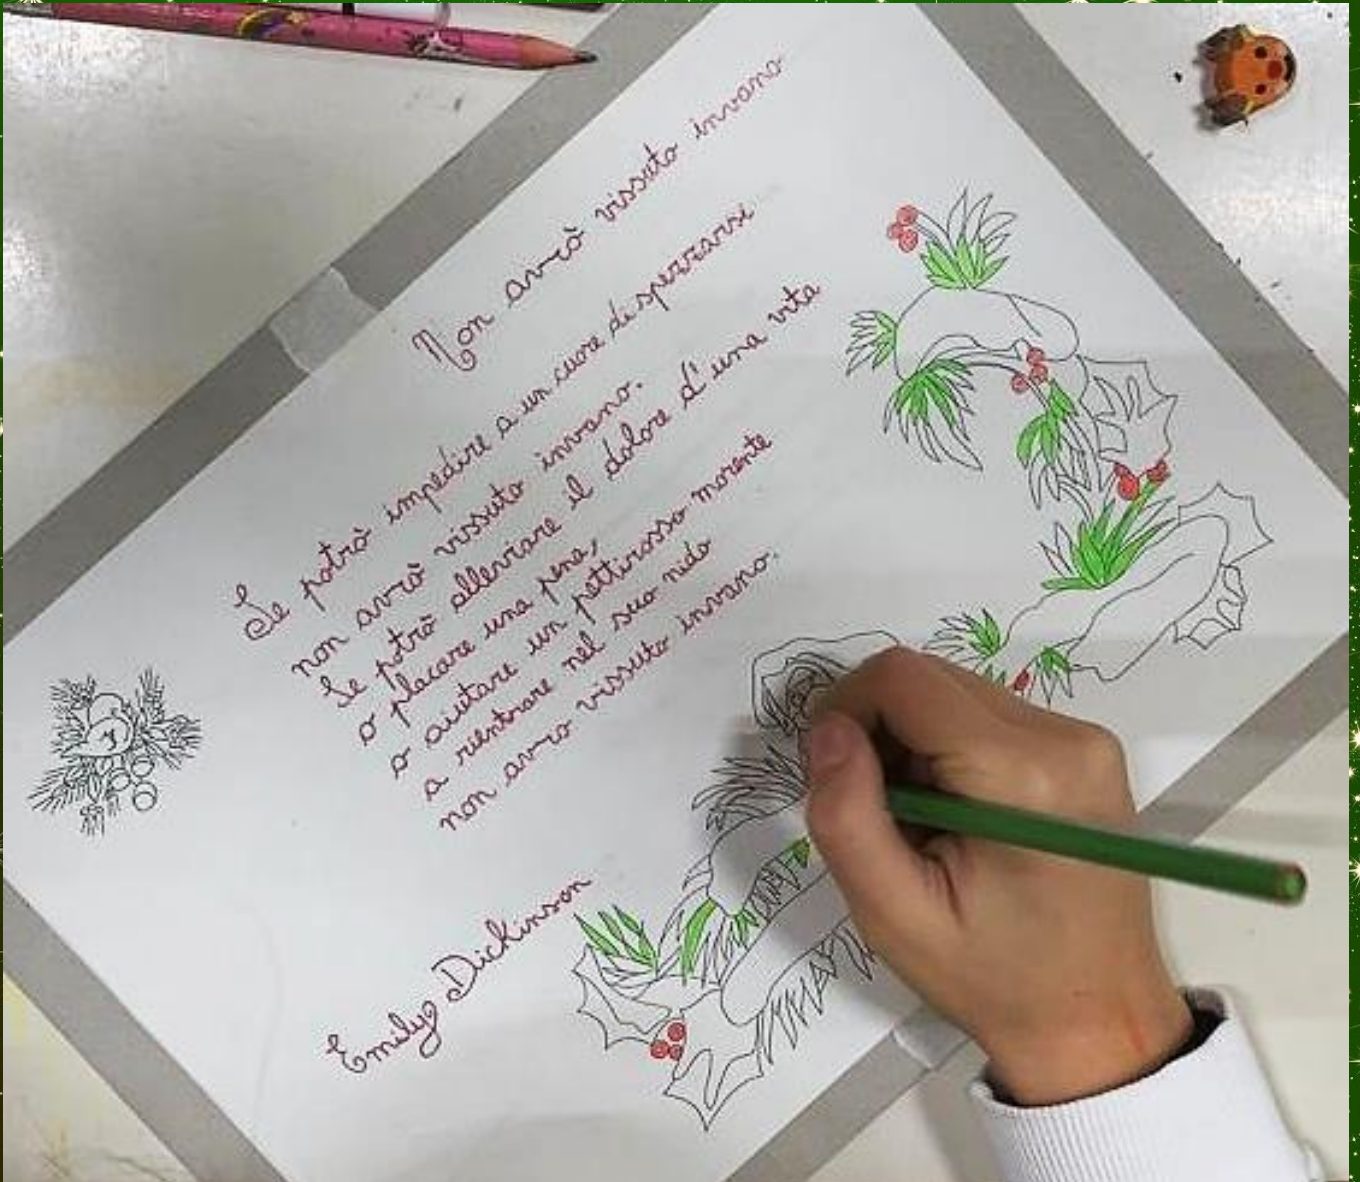 Non avrò vissuto invano
Se potrò impedire a un cuore di spezzarsi
non avrò vissuto invano.
Se potrò alleviare il dolore d'una vita
o placare una pena,
o aiutare un pettirosso morente
a rientrare nel suo nido
non avrò vissuto invano.
Emily Dickinson